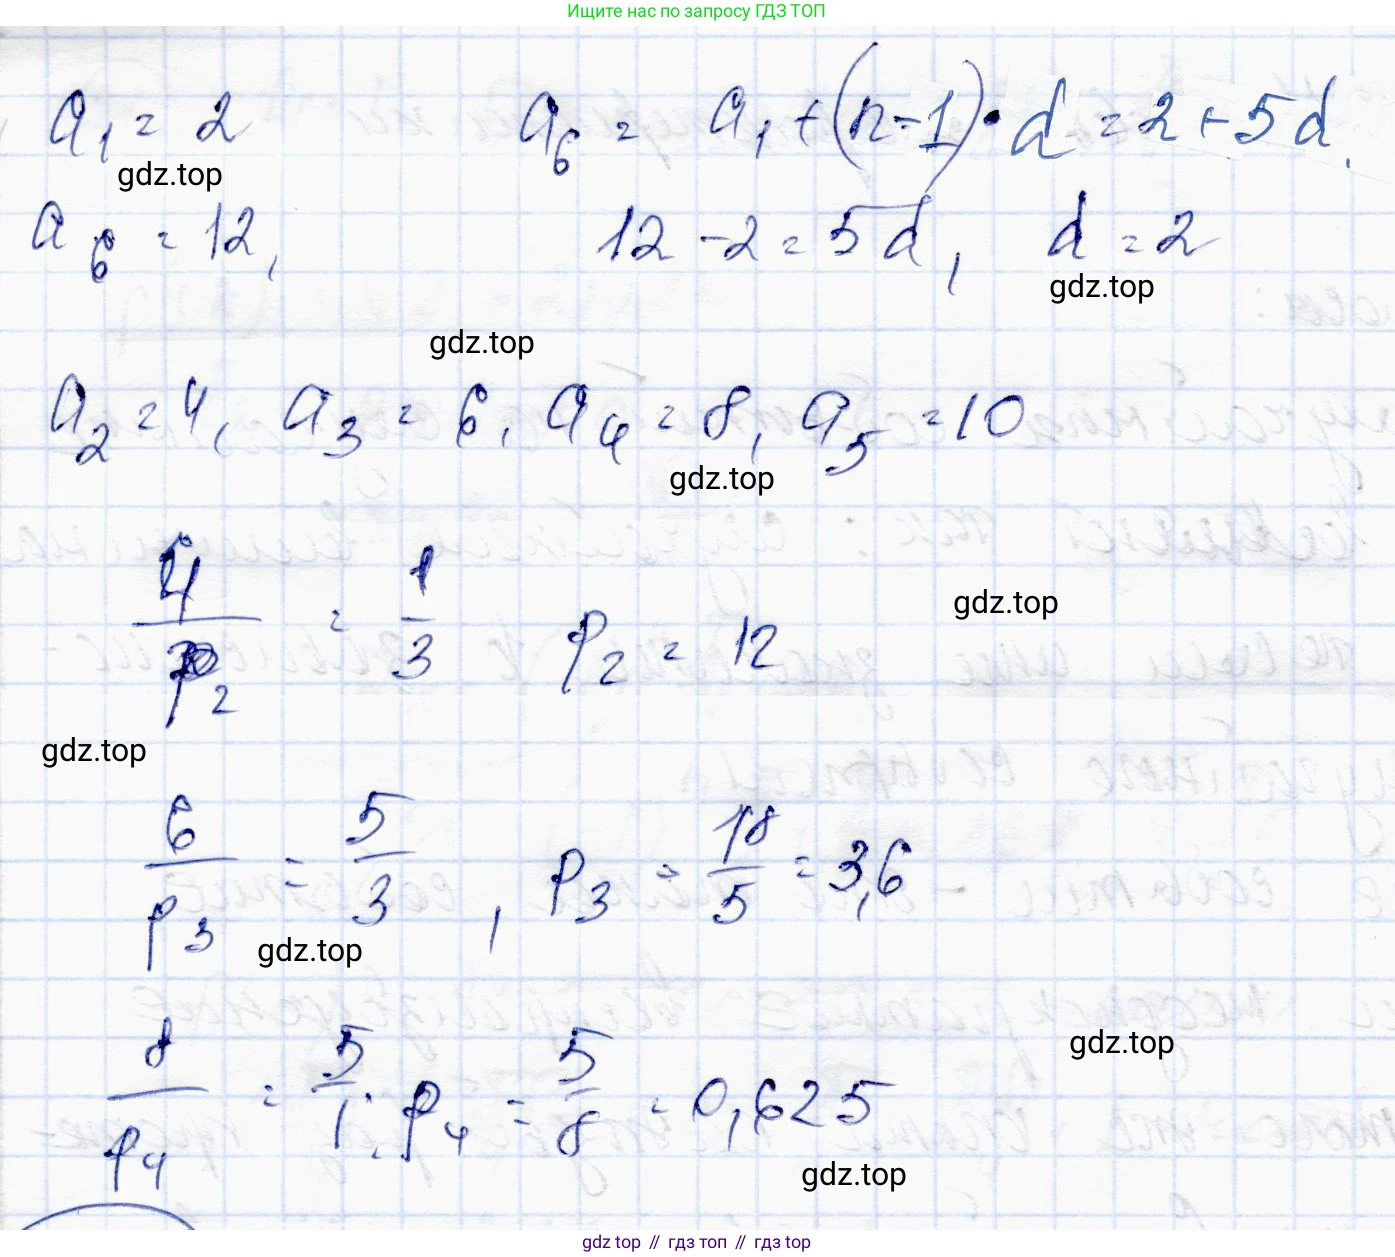 Ищите нас по запросу ГДЗ ТОП
a₁ = 2 a₆ = a₁ + (n - 1) • d = 2 + 5d
gdz.top
a₆ = 12, 12 - 2 = 5d, d = 2
gdz.top
gdz.top
a₂ = 4, a₃ = 6, a₄ = 8, a₅ = 10
gdz.top
4/p₂ = 1/3 p₂ = 12
gdz.top
gdz.top
6/p₃ = 5/3, p₃ = 18/5 = 3,6
gdz.top
gdz.top
8/p₄ = 5/1. p₄ = 5/8 = 0,625
gdz.top
gdz top // гдз топ // gdz top